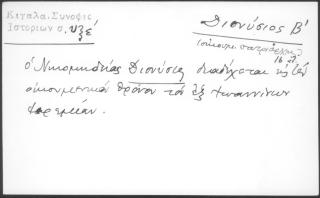 Κιγάλα. Σύνοψις
Ἱστοριῶν σ. υξέ
Διονύσιος Β'
(οἰκουμ. πατριάρχης)
16 αἰ.
Ὁ Νικομηδείας Διονύσιος διαδέχεται εἰς τὸν
οἰκουμενικὸν θρόνον τὸν ἐξ Ἰωαννίνων
Ἱερεμίαν.